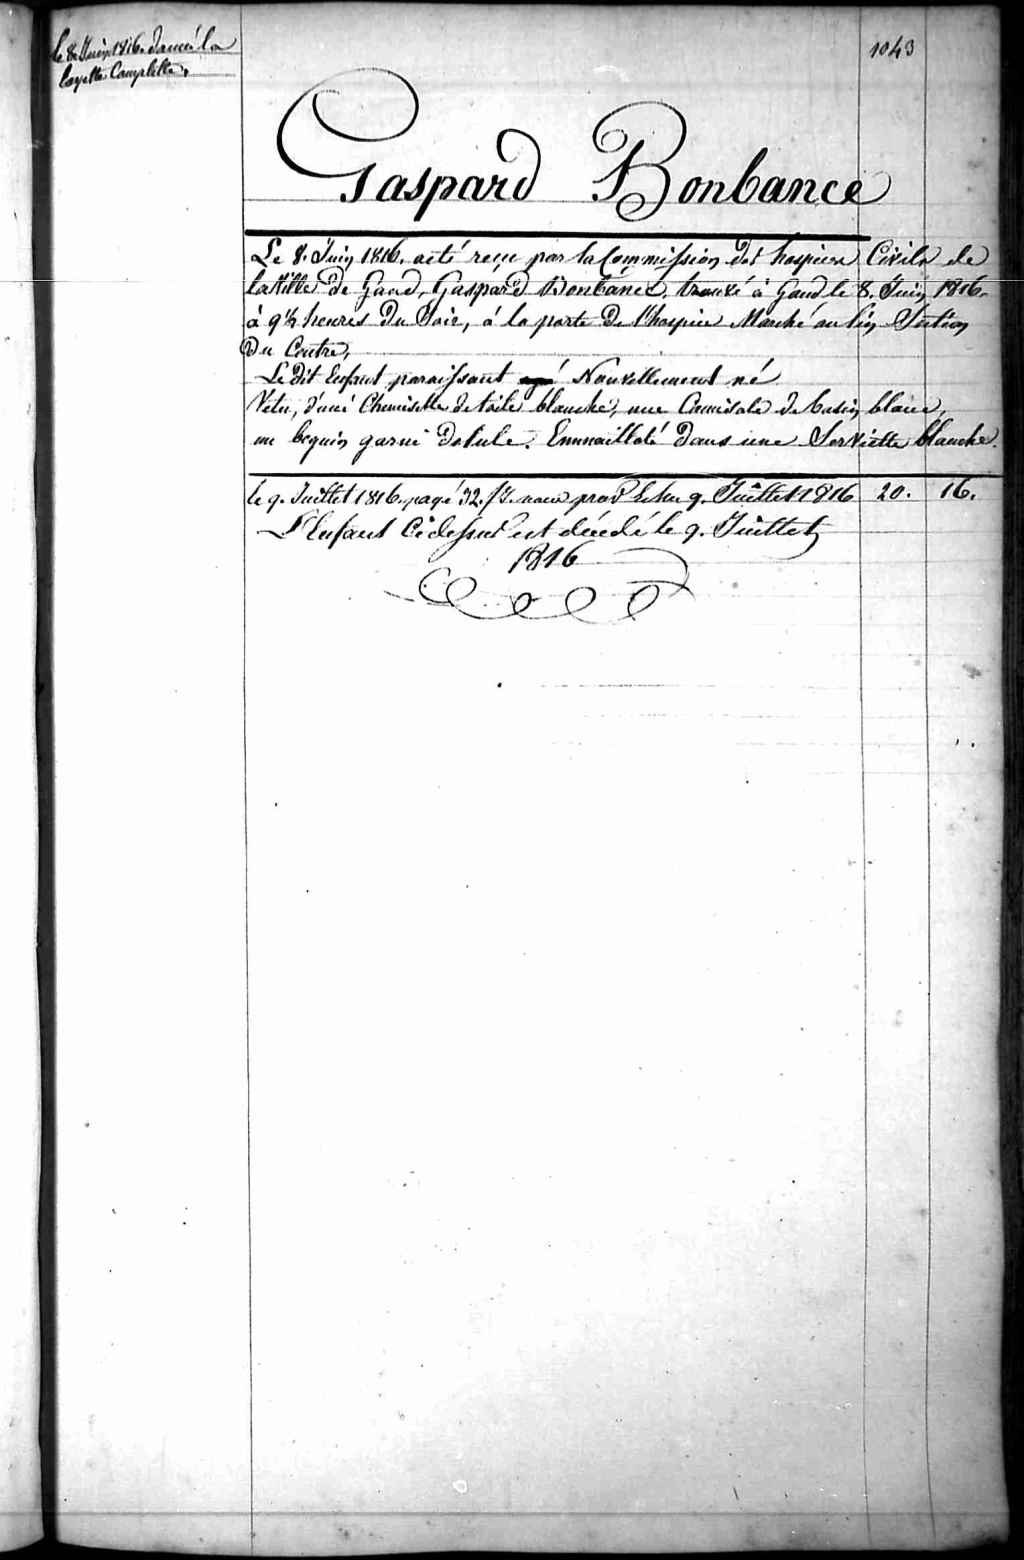 le 8. Juin 1816. donné la
layette Complette,
1043
Gaspard Bonbance
Le 8. Juin 1816. a été reçu par la Commission des hospices Civils de
la Ville de Gand, Gaspard Bonbance, trouvé à Gand le 8. Juin 1816.
à 9½ heures du Soir, à la porte de l'hospice Marché au lin Section
du Centre,
Le dit Enfant paraissant Nouvellement né.
Vetu, d'une Chemisette de toile blanche, une Camisole de basin blanc,
un beguin garni de tule. Emmailloté dans une Serviette blanche.
le 9. Juillet 1816. payé 32. 9. Juillet 1816 20. 16.
L'Enfant Cidessus est décédé le 9. Juillet
1816